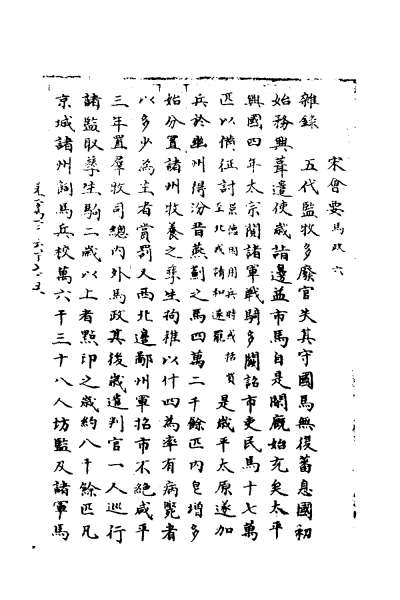 宋會要 馬政六
雜錄
五代監牧多廢官失其守國馬無復蓄息國初
始務興葺遣使歲詣邊益市馬自是閑廐始充矣太平
興國四年太宗閱諸軍戰騎多闕詔市吏民馬十七萬
匹以備征討景德因用兵時或括買至北戎請和遂罷是歲平太原遂加
兵於幽州得汾晉燕薊之馬四萬二千餘匹內皂增多
始分置諸州牧養之孳生拘稚以什四為率有病斃者
以多少為主者賞罰又西北邊鄰州軍招市不絕咸平
三年置羣牧司總內外馬政其後歲遣判官一人巡行
諸監取孳生駒二歲以上者點印之歲約八千餘匹凡
京城諸州飼馬兵校萬六千三十八人坊監及諸軍馬